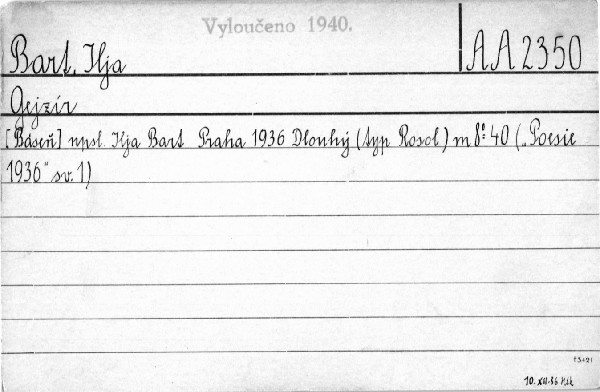 Vyloučeno 1940.
Bart, Ilja
AA 2350
Gejzír
[Báseň] npsl. Ilja Bart Praha 1936 Dlouhý (typ. Rosol) m 8° 40 („Poesie
1936“ sv. 1)
10. XII-36